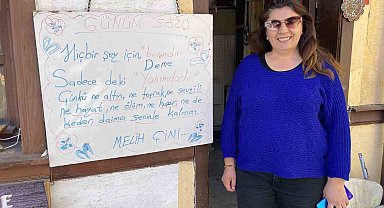 GÜNÜN SÖZÜ
Hiçbir şey için "benimdir"
Deme
Sadece deki "Yanımdadır"
Çünkü ne altın, ne toprak, ne sevgili
ne hayat, ne ölüm, ne huzur, ne de
keder, daima seninle kalmaz...
MELİH ÇINI